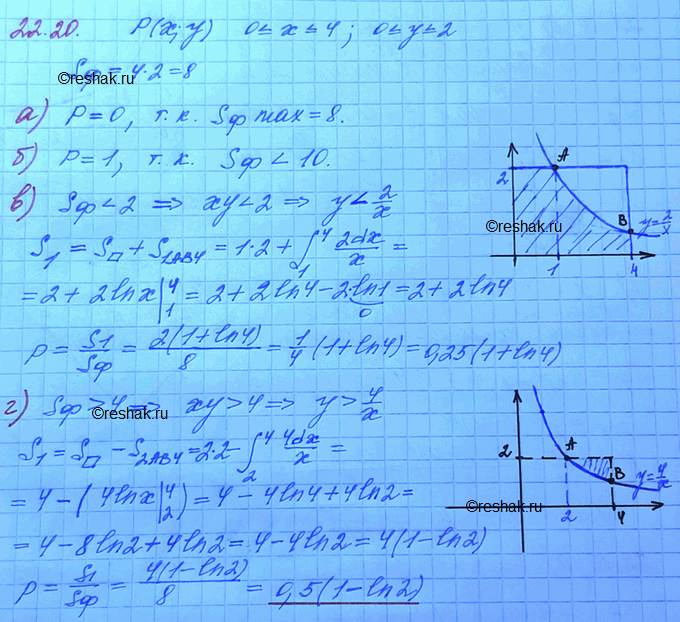 22.20. P(x;y) 0≤x≤4; 0≤y≤2
Sф = 4·2 = 8
©reshak.ru
а) P=0, т.к. Sф max = 8.
б) P=1, т.к. Sф < 10.
в) Sф < 2 ⟹ xy < 2 ⟹ y < 2/x
S₁ = S▭ + S₁ᴀʙ₄ = 1·2 + ∫₁⁴ 2dx/x =
= 2 + 2lnx|₁⁴ = 2 + 2ln4 − 2·ln1 = 2 + 2ln4
0
P = S₁/Sф = 2(1+ln4)/8 = 1/4 (1+ln4) = 0,25(1+ln4)
2 A B y=2/x
©reshak.ru
1 4
г) Sф > 4 ⟹ xy > 4 ⟹ y > 4/x
©reshak.ru
S₁ = S▭ − S₂ᴀʙ₄ = 2·2 − ∫₂⁴ 4dx/x =
= 4 − (4lnx|₂⁴) = 4 − 4ln4 + 4ln2 =
= 4 − 8ln2 + 4ln2 = 4 − 4ln2 = 4(1−ln2)
P = S₁/Sф = 4(1−ln2)/8 = 0,5(1−ln2)
2 A B y=4/x
©reshak.ru
2 4